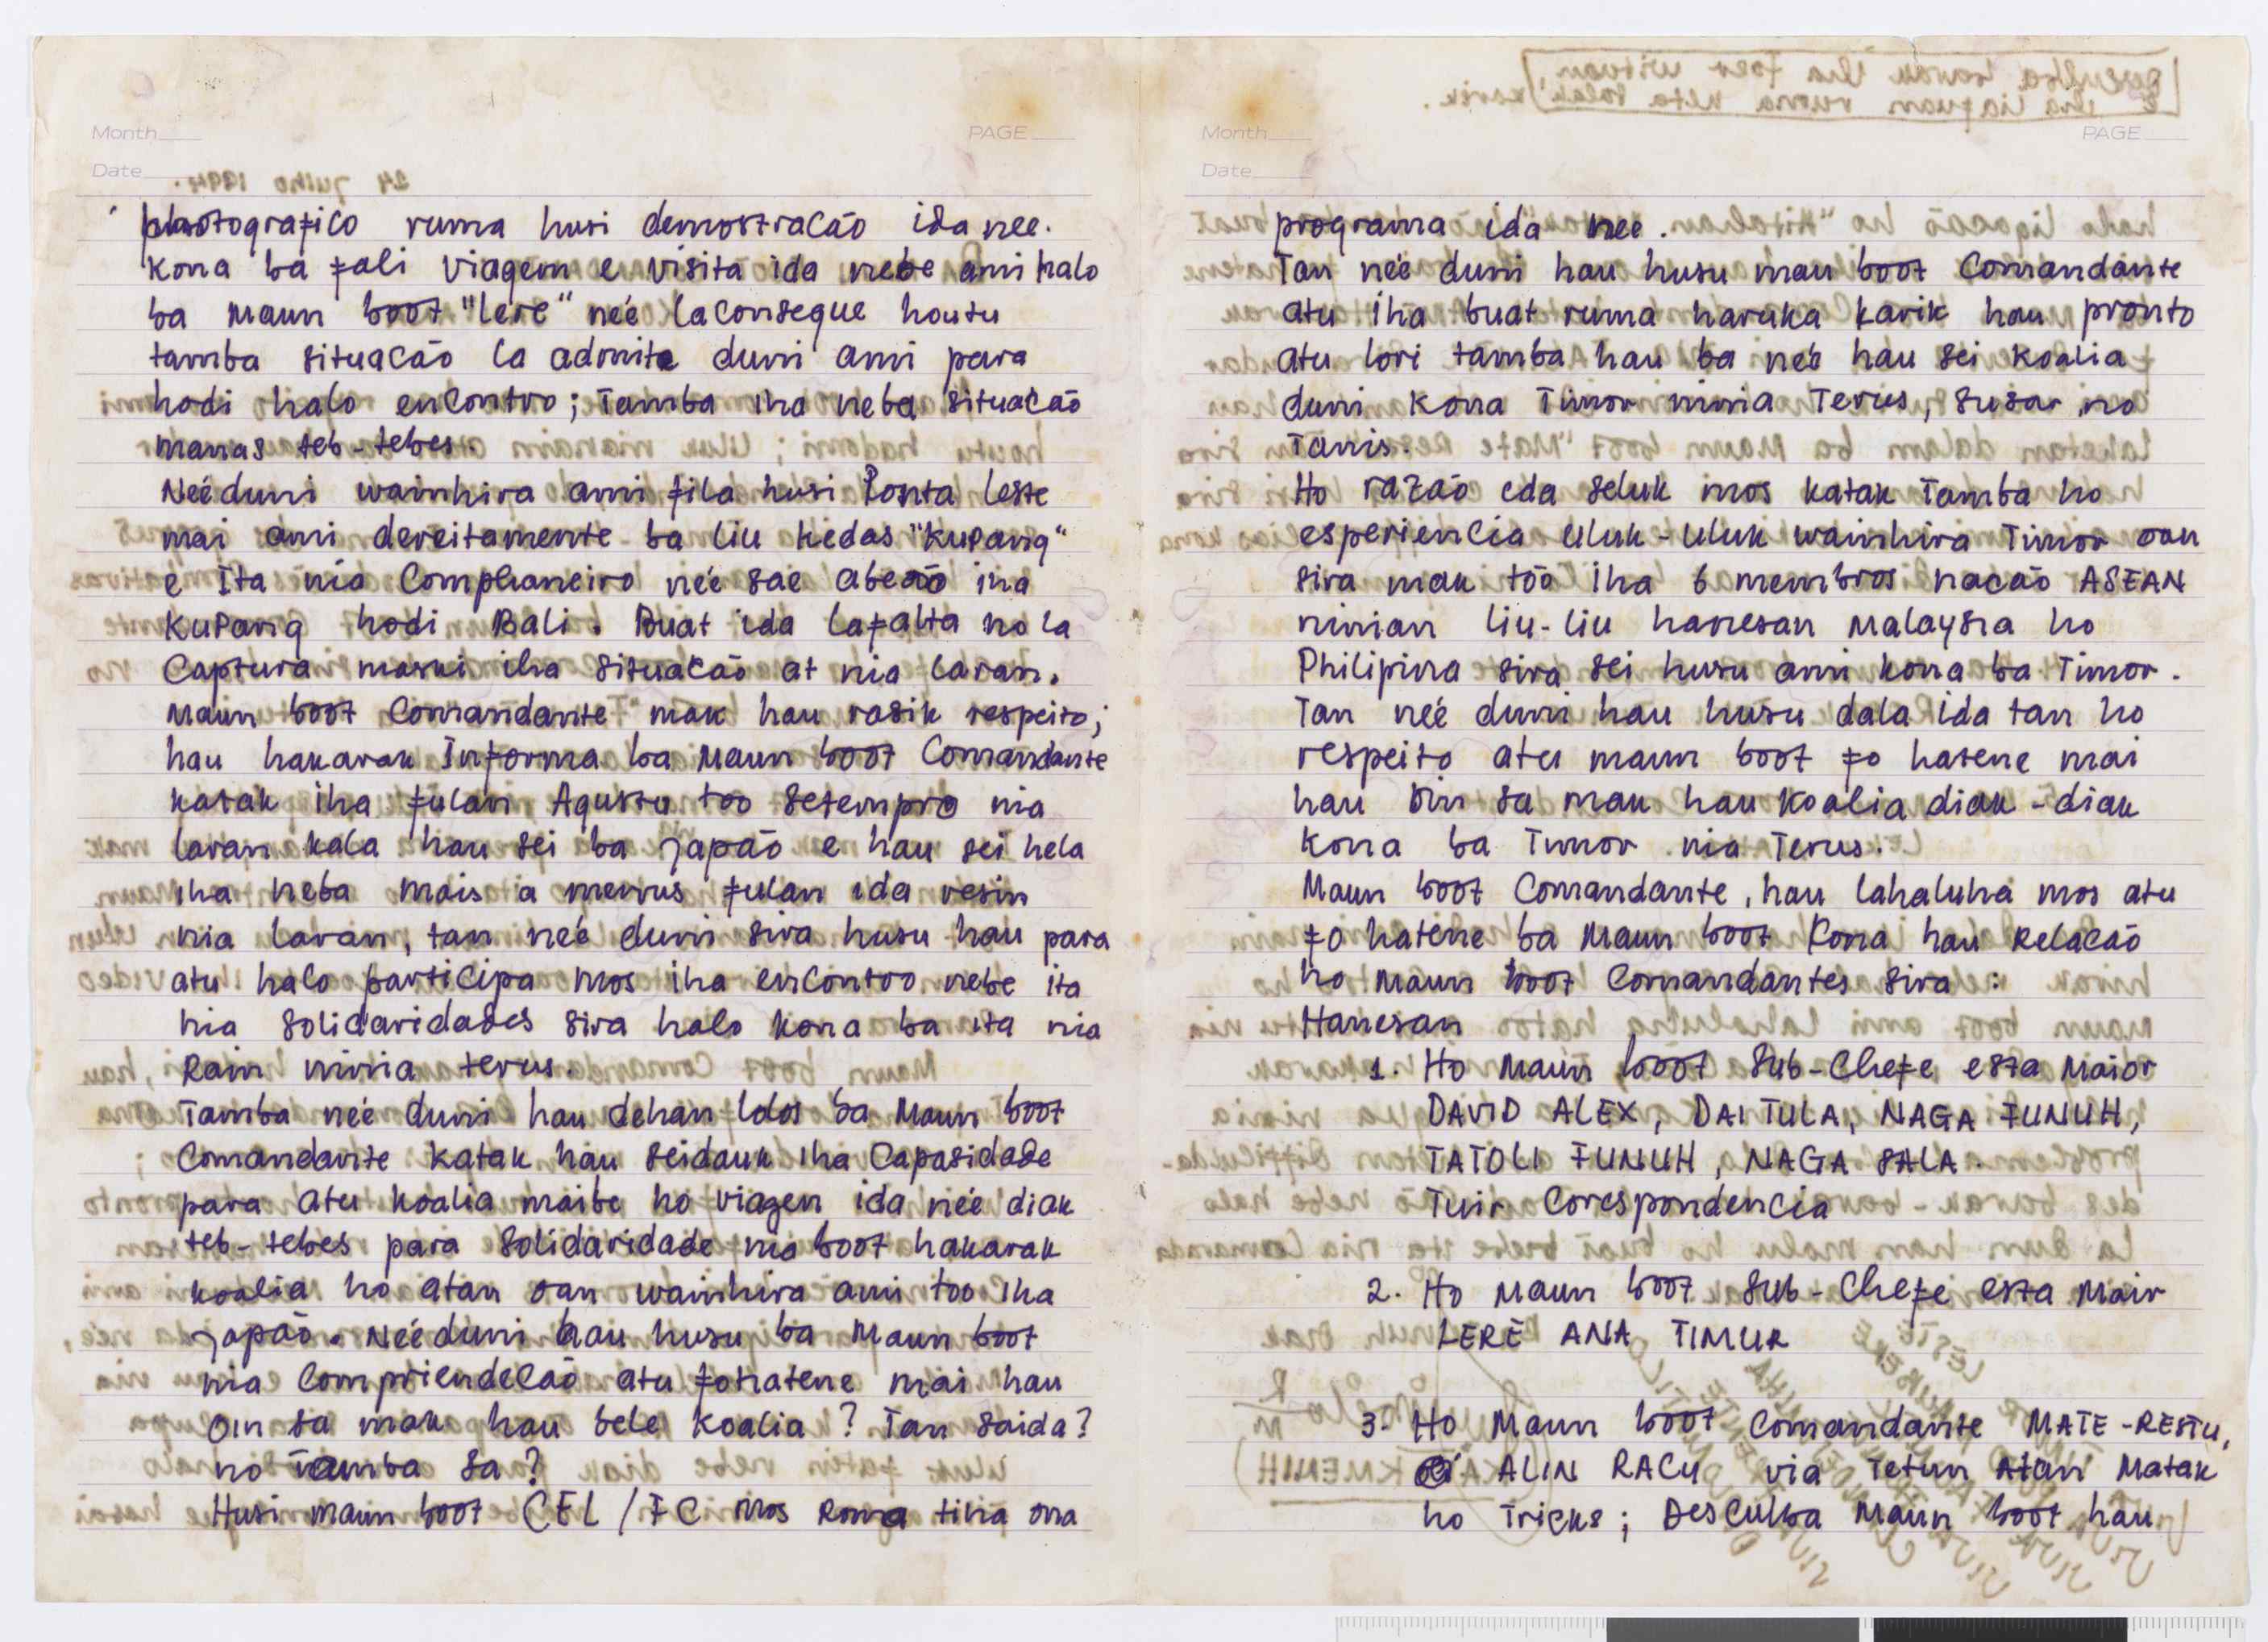 Month
PAGE
Date
photografico ruma husi demostracão ida nee.
Kona ba fali viagem e visita ida nebe ami halo
ba maun boot "lere" neé laconsegue houtu
tamba situacão la admite duni ami para
hodi halo encontro; Tamba iha neba situacão
manas teb-tebes.
Neéduni wainhira ami fila husi Ponta leste
mai ami dereitamente ba liu kedas "Kupang"
e Ita nia Complaneiro neé sae abeaõ iha
Kupang hodi Bali. Buat ida lafalta ho la
Captura maski iha situacão at nia laran.
Maun boot Comandante mak hau rasik respeito;
hau hakarak Informa ba Maun boot Comandante
katak iha fulan Agustu too Setempro nia
laran kala hau sei ba Japão e hau sei hela
iha neba mais a menus fulan ida resin
nia laran, tan neé duni sira husu hau para
atu halo participa mos iha encontro nebe ita
nia Solidaridades sira halo kona ba ita nia
Rain ninia terus.
Tamba neé duni hau dehan lolos ba Maun boot
Comandante katak hau seidauk iha Capasidade
para atu koalia maibe ho viagen ida neé diak
teb-tebes para Solidaridade nia boot hakarak
koalia ho atan oan wainhira ami too iha
Japão. Neéduni hau husu ba Maun boot
nia Compriendecão atu fohatene mai hau
oin sa mak hau bele koalia? Tan saida?
no Tamba sa?
Husi maun boot CEL/FC mos Roma tiha ona
Month
PAGE
Date
programa ida nee.
Tan neé duni hau husu mau boot Comandante
atu iha buat ruma haruka karik hau pronto
atu lori tamba hau ba neé hau sei koalia
duni kona Timor ninia Terus, susar no
Tanis.
Ho razão eda seluk mos katak Tamba ho
esperiencia uluk-uluk wainhira Timor oan
sira mak tóo iha 6 membros nacão ASEAN
ninian liu-liu hanesan Malaysia ho
Philipina sira sei husu ami kona ba Timor.
Tan neé duni hau husu dala ida tan ho
respeito atu maun boot fo hatene mai
hau oin sa mak hau koalia diak-diak
kona ba Timor nia Terus.
Maun boot Comandante, hau lahaluha mos atu
fo hatene ba Maun boot Kona hau Relacão
ho Maun boot Comandantes sira :
Hanesan
1. Ho Maun boot Sub-Chefe esta Maior
DAVID ALEX, DAI TULA, NAGA FUNUH,
TATOLI FUNUH, NAGA SALA.
Tuir Corespondencia
2. Ho Maun boot Sub-Chefe esta Mair
LERÉ ANA TIMUR
3. Ho Maun boot Comandante MATE-RESTU,
ALIN RACU via Tetun Atan Matak
ho Tricks; Desculba Maun boot hau